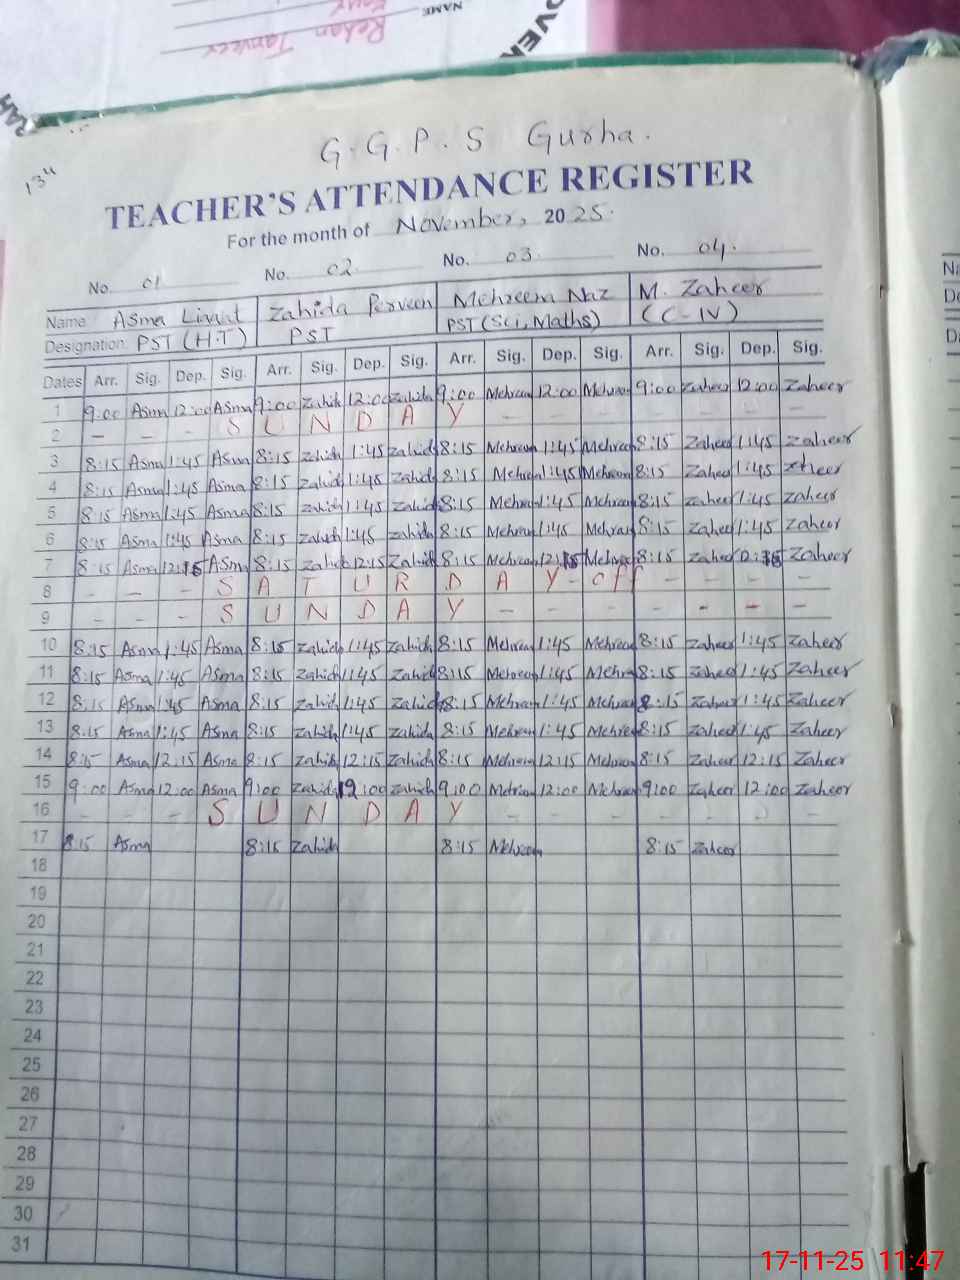 NAME
Rehan Tanveer
134
G.G.P.S Gurha.
TEACHER'S ATTENDANCE REGISTER
For the month of November, 2025.
No. 01 No. 02. No. 03. No. 04.
Name Asma Zahida Perveen Mehreen Naz M. Zaheer
Designation: PST (H.T) PST PST (Sci, Maths) (C-IV)
Dates Arr. Sig. Dep. Sig. Arr. Sig. Dep. Sig. Arr. Sig. Dep. Sig. Arr. Sig. Dep. Sig.
1 9:00 Asma 12:00 Asma 9:00 Zahida 12:00 Zahida 9:00 Mehreen 12:00 Mehreen 9:00 Zaheer 12:00 Zaheer
2 - - - S U N D A Y - - - - - - -
3 8:15 Asma 1:45 Asma 8:15 Zahida 1:45 Zahida 8:15 Mehreen 1:45 Mehreen 8:15 Zaheer 1:45 Zaheer
4 8:15 Asma 1:45 Asma 8:15 Zahida 1:45 Zahida 8:15 Mehreen 1:45 Mehreen 8:15 Zaheer 1:45 Zaheer
5 8:15 Asma 1:45 Asma 8:15 Zahida 1:45 Zahida 8:15 Mehreen 1:45 Mehreen 8:15 Zaheer 1:45 Zaheer
6 8:15 Asma 1:45 Asma 8:15 Zahida 1:45 Zahida 8:15 Mehreen 1:45 Mehreen 8:15 Zaheer 1:45 Zaheer
7 8:15 Asma 12:15 Asma 8:15 Zahida 12:15 Zahida 8:15 Mehreen 12:15 Mehreen 8:15 Zaheer 12:15 Zaheer
8 - - - S A T U R D A Y - off - - - -
9 - - - S U N D A Y - - - - - - -
10 8:15 Asma 1:45 Asma 8:15 Zahida 1:45 Zahida 8:15 Mehreen 1:45 Mehreen 8:15 Zaheer 1:45 Zaheer
11 8:15 Asma 1:45 Asma 8:15 Zahida 1:45 Zahida 8:15 Mehreen 1:45 Mehreen 8:15 Zaheer 1:45 Zaheer
12 8:15 Asma 1:45 Asma 8:15 Zahida 1:45 Zahida 8:15 Mehreen 1:45 Mehreen 8:15 Zaheer 1:45 Zaheer
13 8:15 Asma 1:45 Asma 8:15 Zahida 1:45 Zahida 8:15 Mehreen 1:45 Mehreen 8:15 Zaheer 1:45 Zaheer
14 8:15 Asma 12:15 Asma 8:15 Zahida 12:15 Zahida 8:15 Mehreen 12:15 Mehreen 8:15 Zaheer 12:15 Zaheer
15 9:00 Asma 12:00 Asma 9:00 Zahida 12:00 Zahida 9:00 Mehreen 12:00 Mehreen 9:00 Zaheer 12:00 Zaheer
16 - - - S U N D A Y - - - - - - -
17 8:15 Asma 8:15 Zahida 8:15 Mehreen 8:15 Zaheer
18
19
20
21
22
23
24
25
26
27
28
29
30
31
17-11-25 11:47